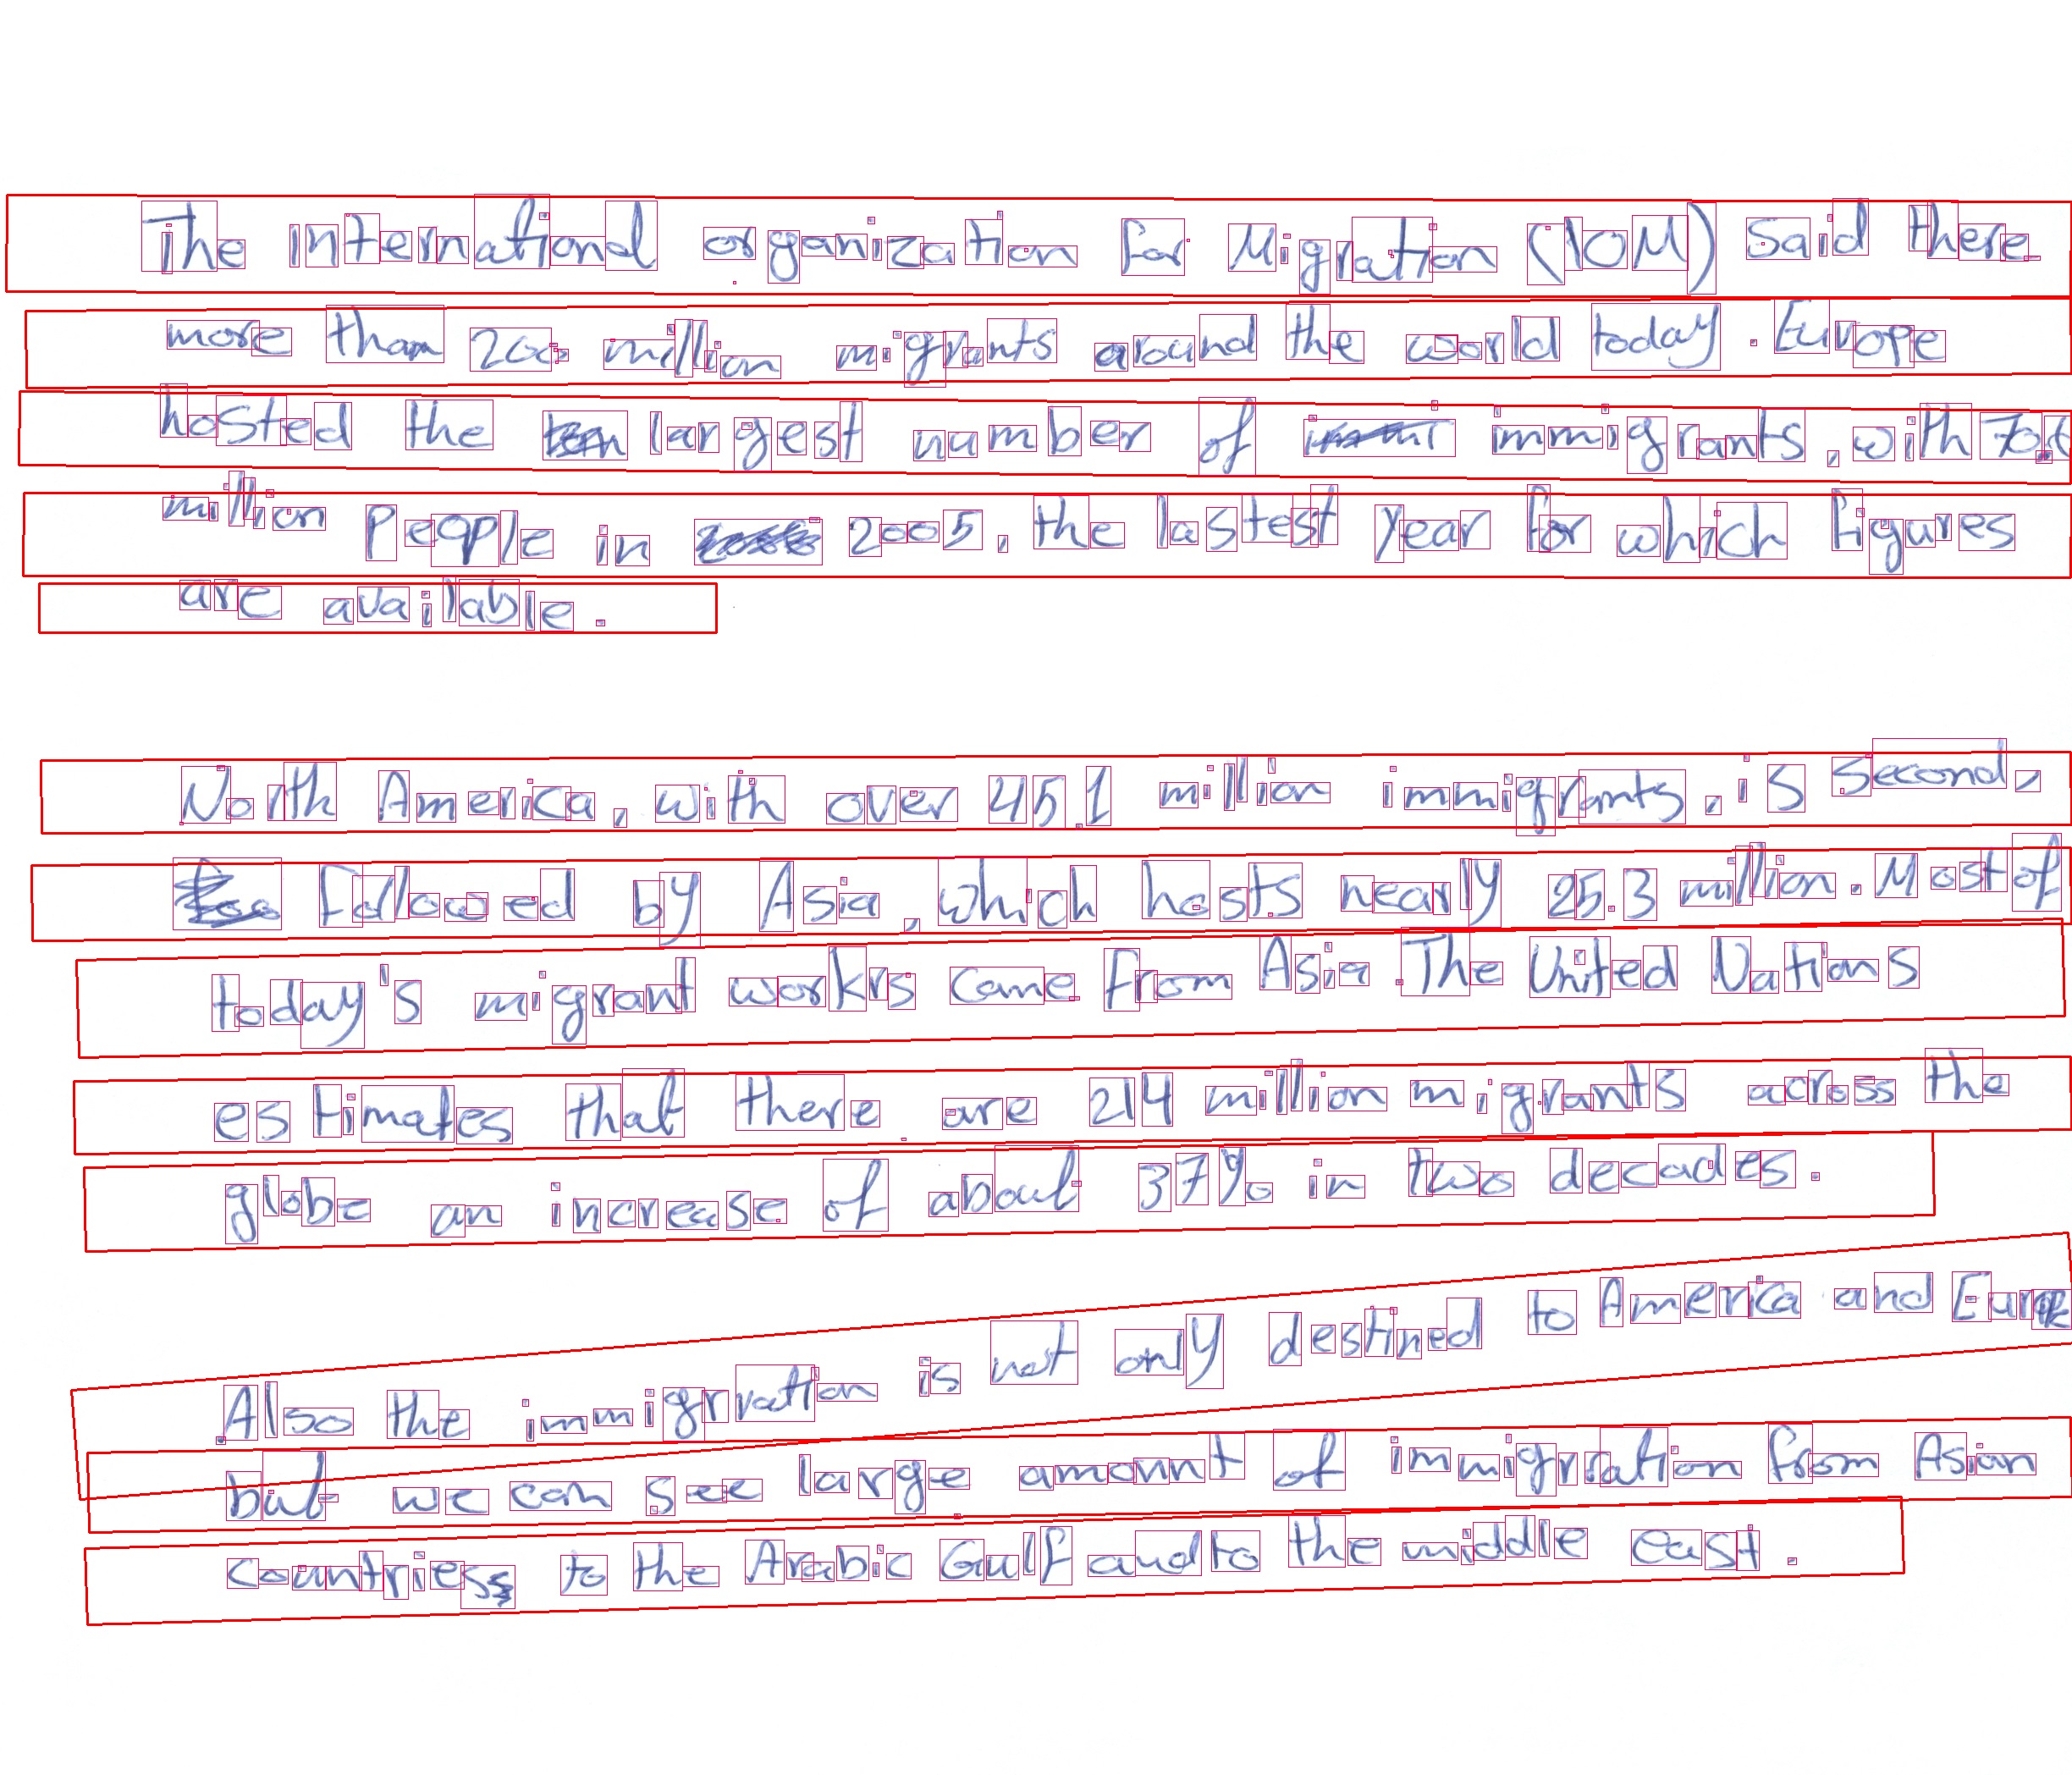 The International organization for Migration (IOM) said there
more than 200 million migrants around the world today. Europe
hosted the largest number of immigrants, with 70.6
million People in 2005, the lastest year for which figures
are available.
North America, with over 45.1 million immigrants, is second,
followed by Asia, which hosts nearly 25.3 million. Most of
today's migrant workrs came from Asia. The United Nations
estimates that there are 214 million migrants across the
globe an increase of about 37% in two decades.
Also the immigrvation is not only destined to America and Europe
but we can see large amount of immigrration from Asian
countries to the Arabic Gulf and to the middle east.